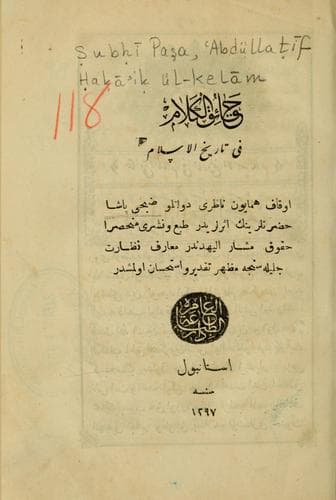 Ṣubḥī Paşa, ʿAbdüllaṭīf
Ḥaḳāʾiḳ ül-kelām
118
حقائق الكلام
فى تاريخ الاسلام
اوقاف همايون ناظرى دولتلو صبحى پاشا
حضرتلرينك اثرلريدر طبع ونشرى منحصرا
حقوق مشار اليهدندر معارف نظارت
جليله سنجه مظهر تقدير و استحسان اولمشدر
استانبول
سنه
١٢٩٧